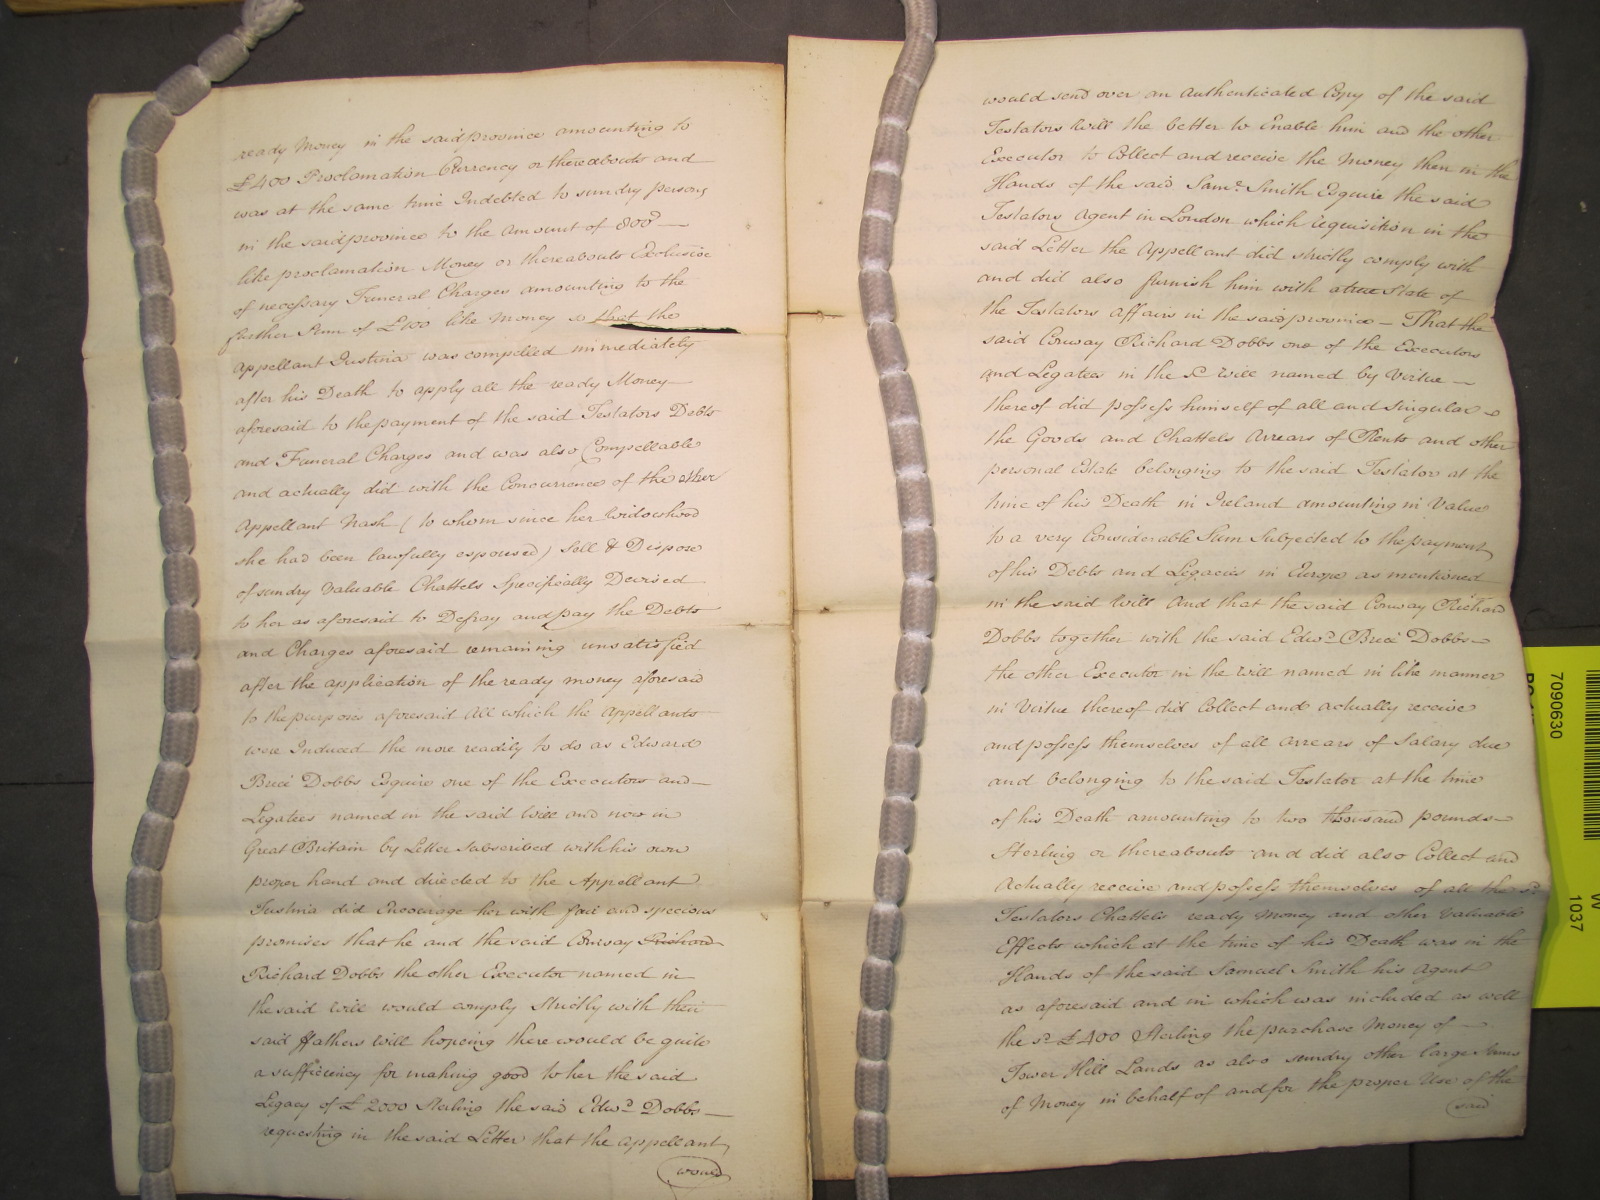 ready Money in the said province amounting to
£400 Proclamation Currency or thereabouts and
was at the same time Indebted to sundry persons
in the said province to the amount of 800£ —
like proclamation Money or thereabouts Exclusive
of necessary Funeral Charges amounting to the
further Sum of £100 like Money so that the
appellant Justina was compelled immediately
after his Death to apply all the ready Money
aforesaid to the payment of the said Testators Debts
and Funeral Charges and was also Compellable
and actually did with the Concurrence of the other
Appellant Nash (to whom since her Widowhood
she had been lawfully espoused) Sell & Dispose
of sundry Valuable Chattels Specifically Devised
to her as aforesaid to Defray and pay the Debts
and Charges aforesaid remaining unsatisfied
after the application of the ready money aforesaid
to the purposes aforesaid All which the Appellants
were Induced the more readily to do as Edward
Brice Dobbs Esquire one of the Executors and —
Legatees named in the said Will and now in
Great Britain by Letter Subscribed with his own
proper hand and directed to the Appellant
Justina did Encourage her with fair and specious
promises that he and the said Conway Richard
Richard Dobbs the other Executor named in
the said Will would comply Strictly with their
said ffathers Will hopeing there would be quite
a sufficiency for making good to her the said
Legacy of £2000 Sterling the said Edwd. Dobbs —
requesting in the said Letter that the appellant
would
would send over an Authenticated Copy of the said
Testators Will the better to Enable him and the other
Executor to Collect and receive the Money then in the
Hands of the said Saml. Smith Esquire the said
Testators Agent in London which requisition in the
said Letter the Appellant did strictly comply with
and did also furnish him with a true State of
the Testators affairs in the said province — That the
said Conway Richard Dobbs one of the Executors
and Legatees in the sd. Will named by Virtue —
thereof did possess himself of all and singular
the Goods and Chattels Arrears of Rents and other
personal Estate belonging to the said Testator at the
time of his Death in Ireland amounting in Value
to a very Considerable Sum Subjected to the payment
of his Debts and Legacies in Europe as mentioned
in the said Will And that the said Conway Richard
Dobbs together with the said Edwd. Brice Dobbs —
the other Executor in the Will named in like manner
in Virtue thereof did Collect and actually receive
and possess themselves of all Arrears of Salary due
and belonging to the said Testator at the time
of his Death amounting to two thousand pounds —
Sterling or thereabouts and did also Collect and
Actually receive and possess themselves of all the sd.
Testators Chattels ready Money and other Valuable
Effects which at the time of his Death was in the
Hands of the said Samuel Smith his Agent
as aforesaid and in which was included as well
the sd. £400 Sterling the purchase Money of —
Tower Hill Lands as also sundry other large Sums
of Money in behalf of and for the proper Use of the
said
7090630
1037
W